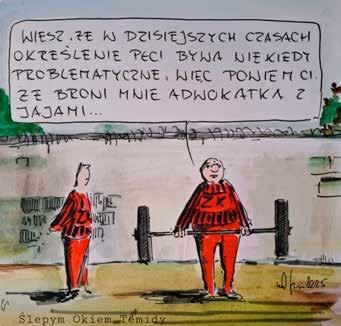 WIESZ, ŻE W DZISIEJSZYCH CZASACH
OKREŚLENIE PŁCI BYWA NIEKIEDY
PROBLEMATYCZNE, WIĘC POWIEM CI.
ŻE BRONI MNIE ADWOKATKA Z
JAJAMI...
ZK
ZK
Ślepym Okiem Temidy